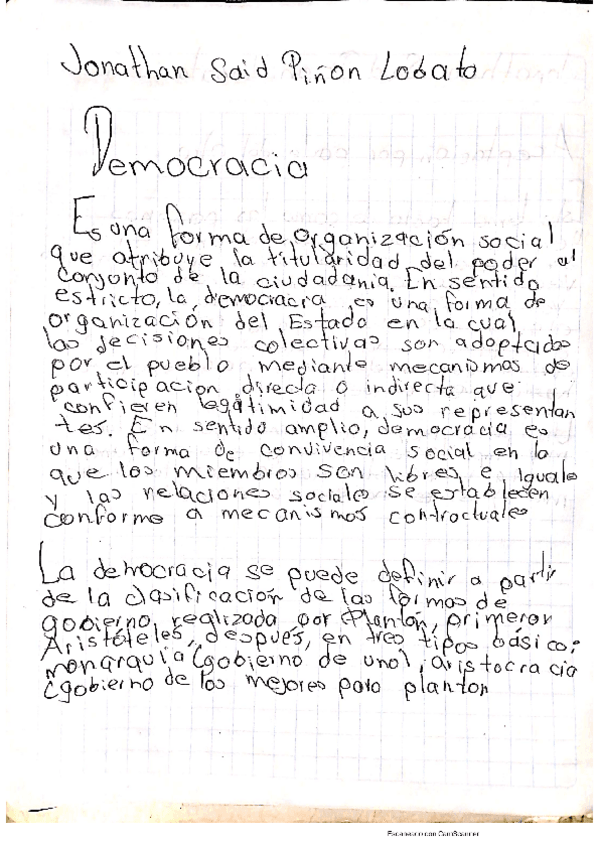 Jonathan Said Piñon Lobato
Democracia
Es una forma de organización social
que atribuye la titularidad del poder al
conjonto de la ciudadania. En sentido
estricto, la democracra es una forma de
organización del Estado en la cual
las decisiones colectivas son adoptadas
por el pueblo mediante mecanismos de
participacion directa o indirecta que
confieren legitimidad a sus representan
tes. En sentido amplio, democracia es
una forma de convivencia social en la
que los miembros son libres e iguales
y las relaciones sociales se establecen
conforme a mecanismos controctuales
La democracia se puede definir a partir
de la clasificación de las formas de
gobierno realizada por Planton, primeror
Aristóteles, después, en tres tipos básico:
monarquia (gobierno de uno), aristocracia
(gobierno de los mejores para planton
Escaneado con CamScanner